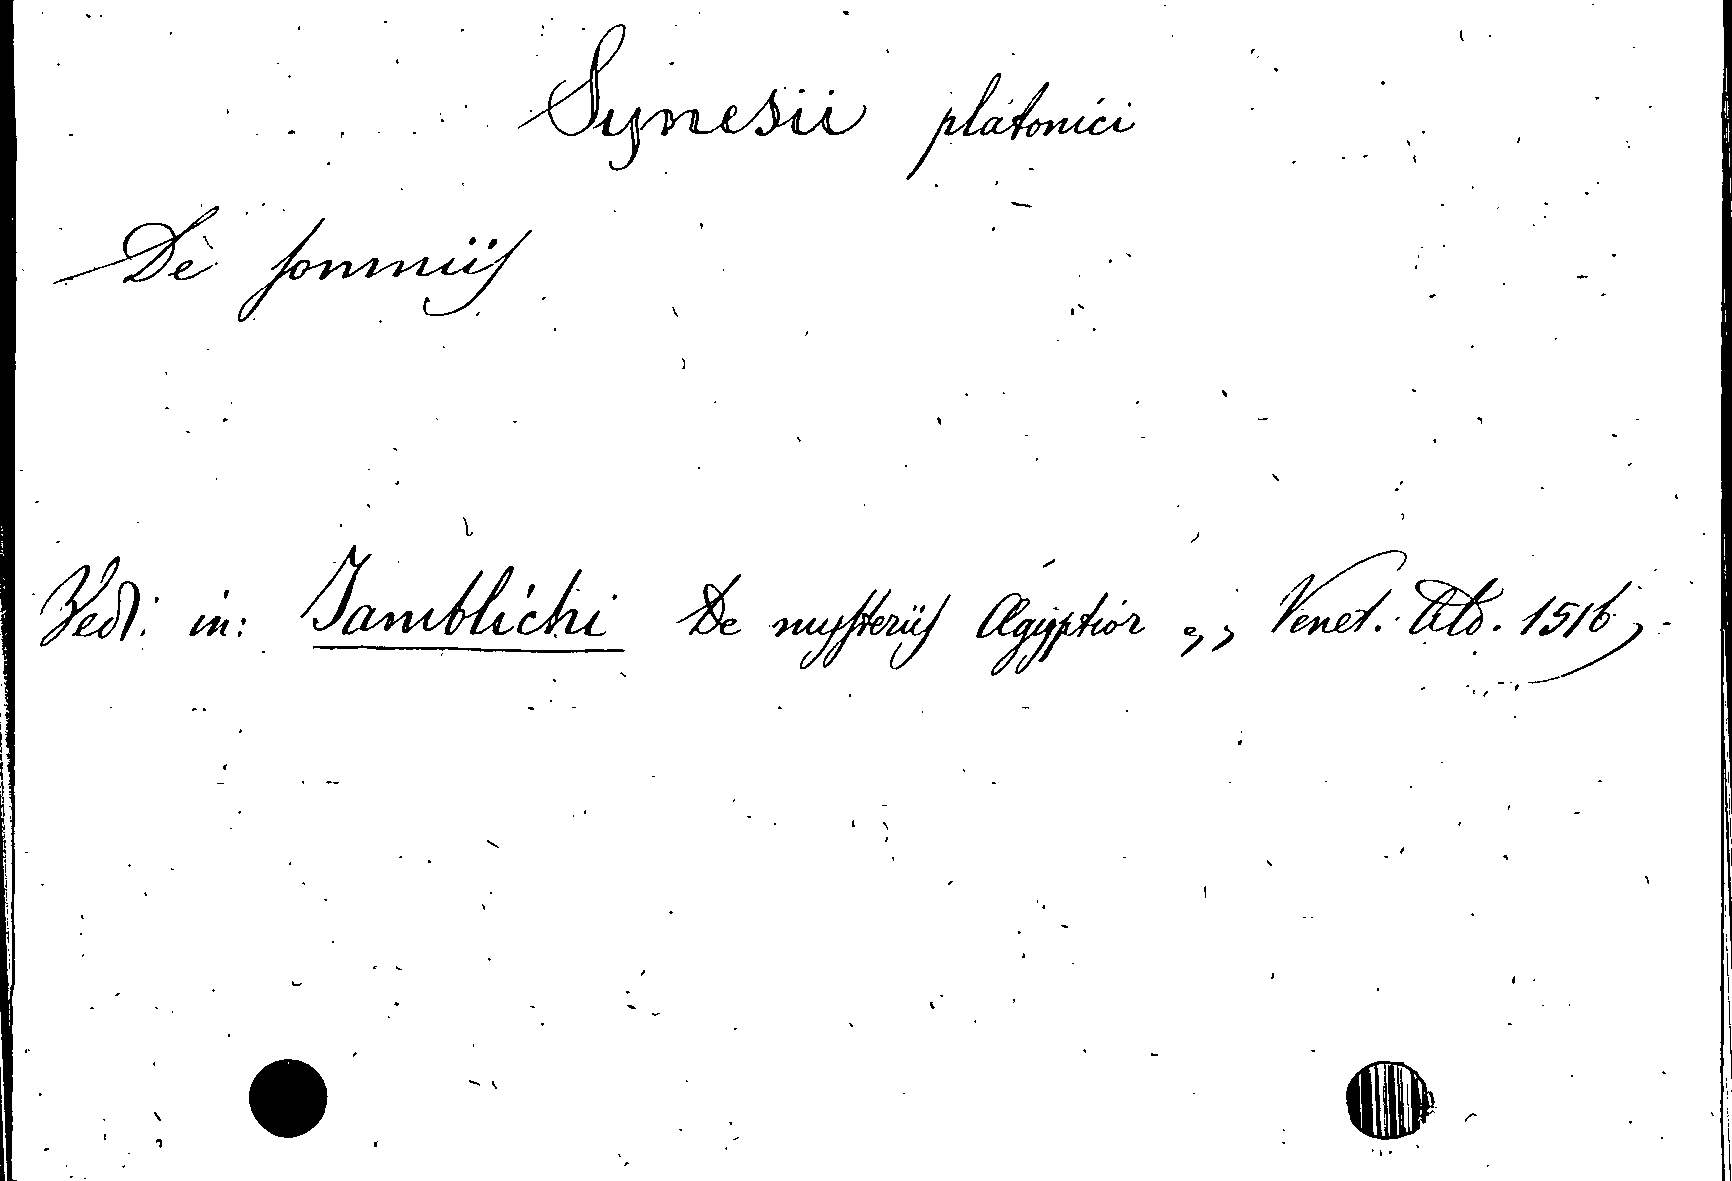 Synesii platonici
De somniis
Vedi: in: Jamblichi De mysteriis Ægyptior ,, Venet. Ald. 1516,